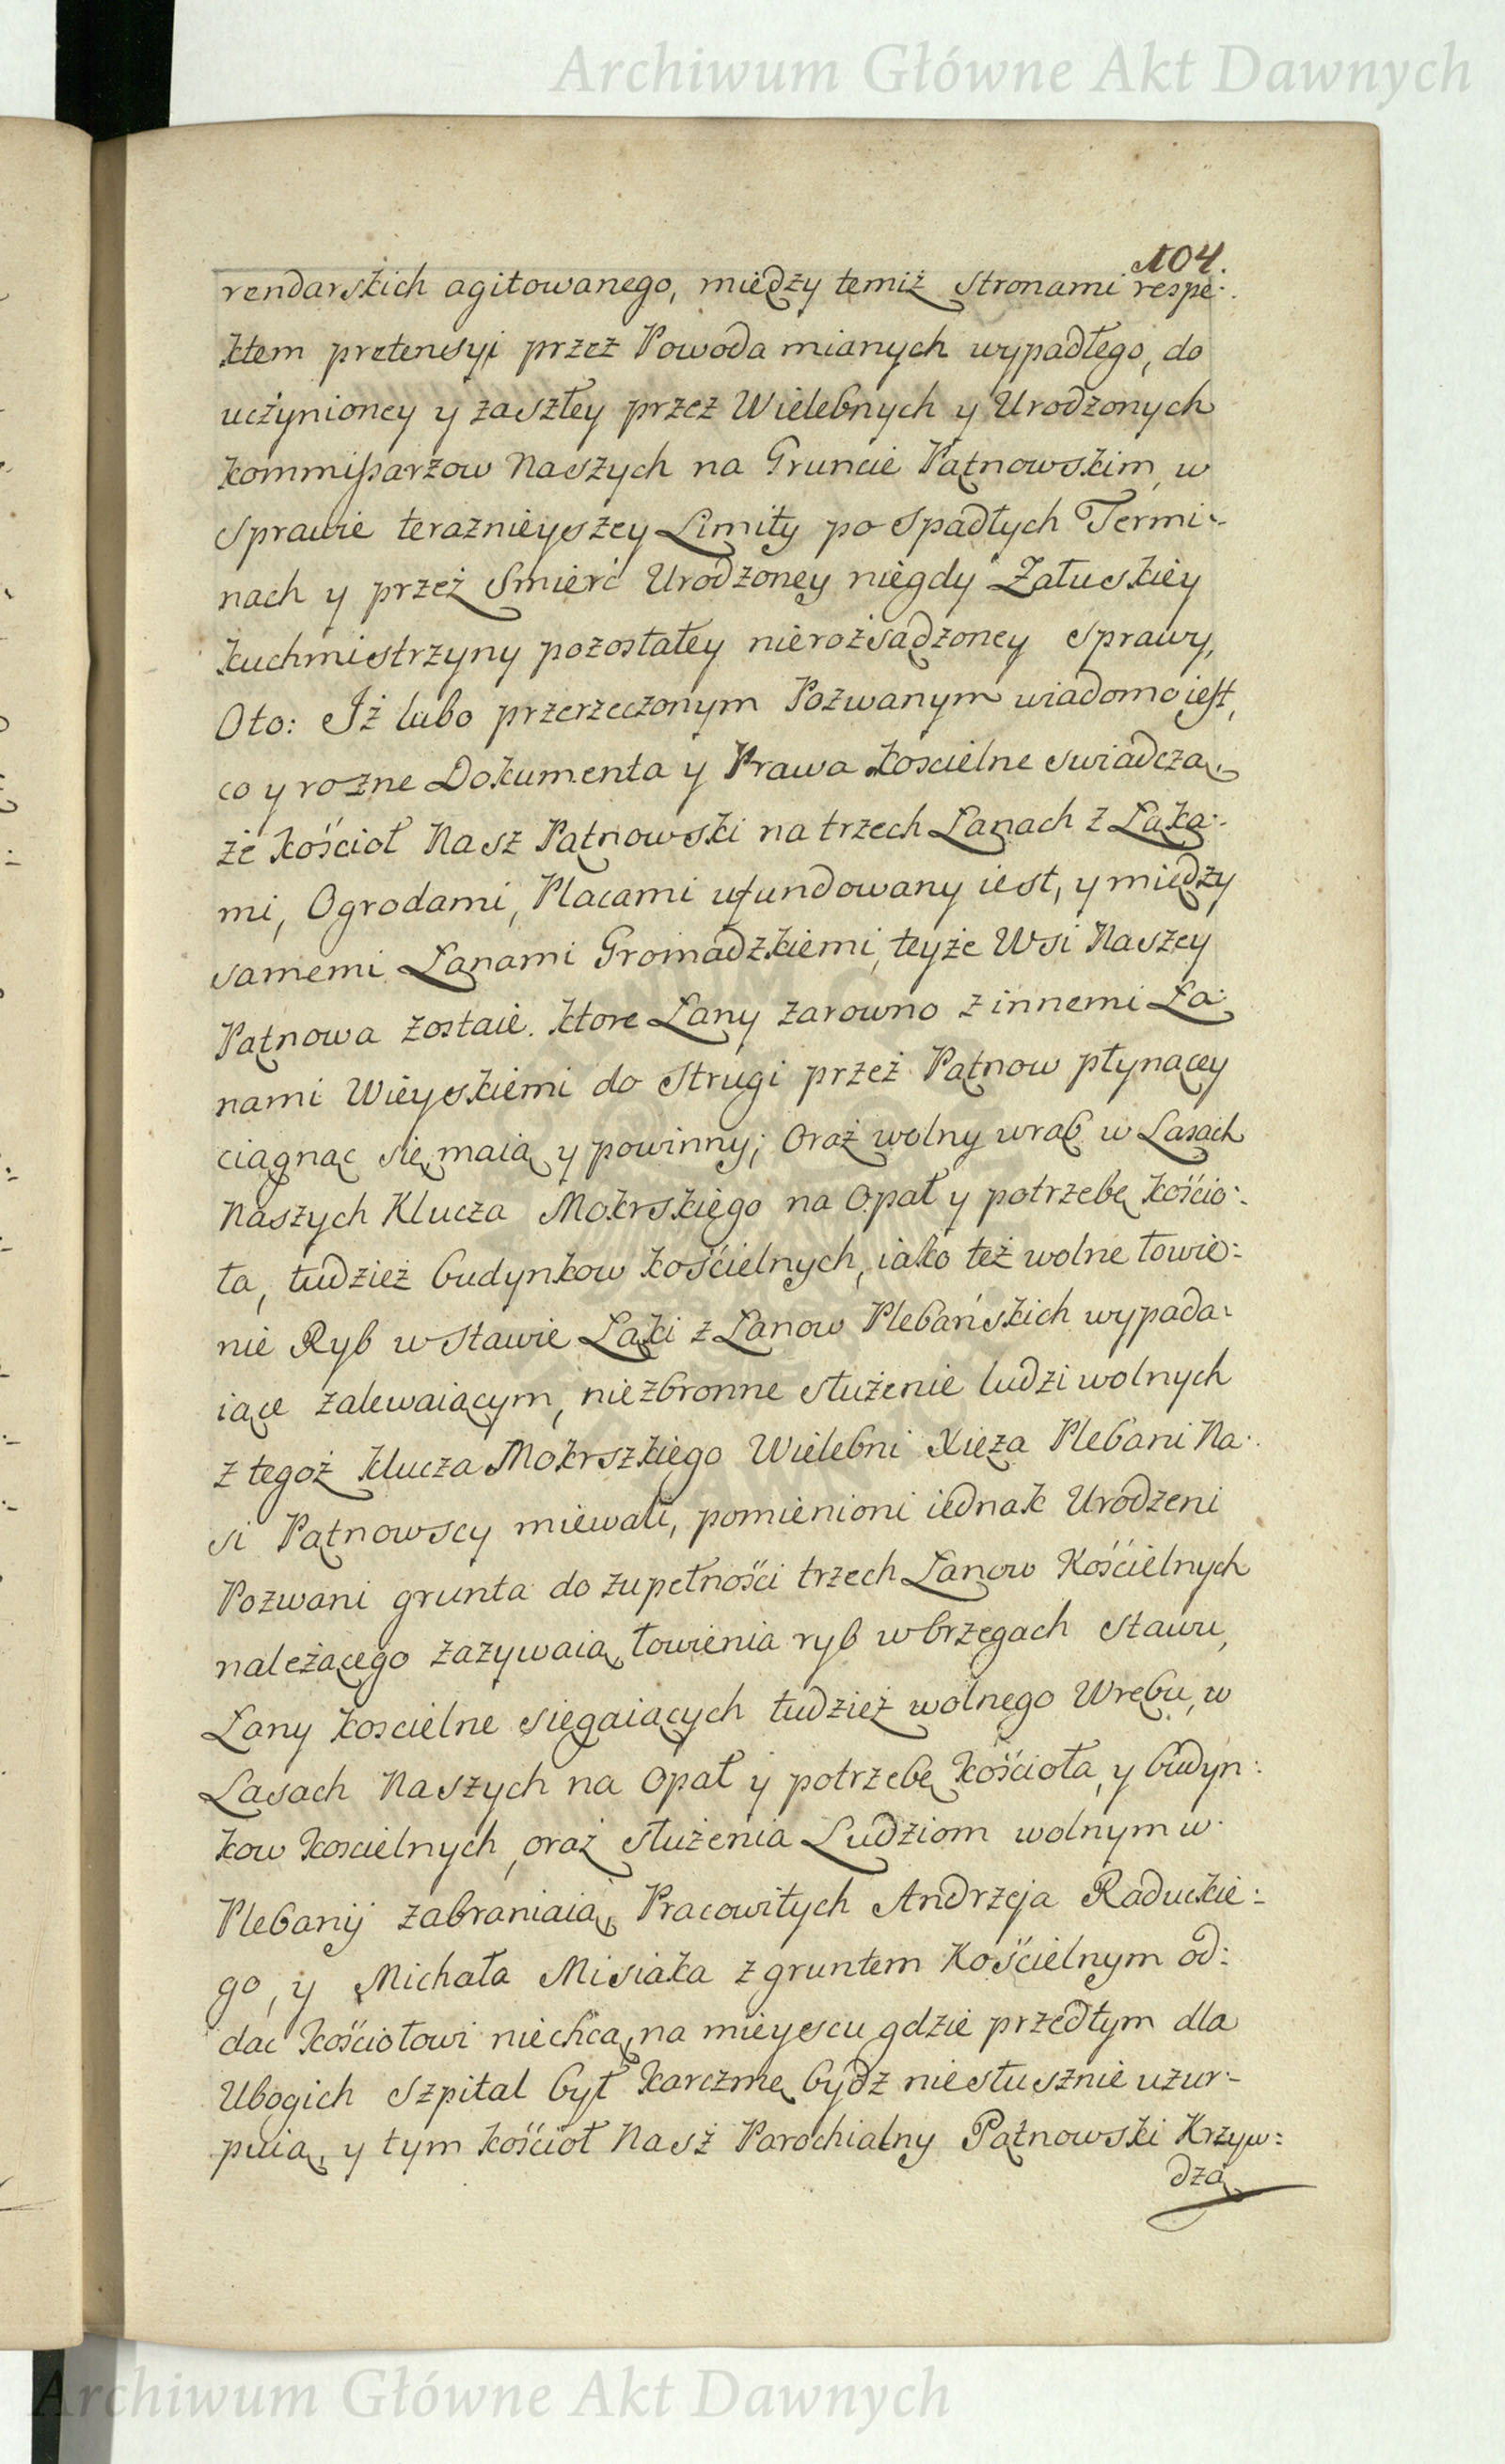 Archiwum Główne Akt Dawnych
104.
rendarskich agitowanego, między temiż Stronami respe:
ktem pretensyi przez Powoda mianych wypadłego, do
uczynioney y zaszłey przez Wielebnych y Urodzonych
Kommissarzow Naszych na Gruncie Pątnowskim, w
Sprawie teraznieyszey Limity po spadłych Termi:
nach y przez Smierć Urodzoney niegdy Załuskiey
Kuchmistrzyny pozostałey nierozsądzoney Sprawy,
Oto: Iż lubo przerzeczonym Pozwanym wiadomo iest,
co y rozne Dokumenta y Prawa Koscielne swiadczą,
że Kościoł Nasz Pątnowski na trzech Łanach z Łąka:
mi, Ogrodami, Placami ufundowany iest, y między
samemi Łanami Gromadzkiemi, teyże Wsi Naszey
Pątnowa zostaie. Ktore Łany zarowno z innemi Ła:
nami Wieyskiemi do Strugi przez Pątnow płynącey
ciągnąc się maią y powinny; Oraz wolny wrąb w Lasach
Naszych Klucza Mokrskiego na Opał y potrzebę Kościo:
ła, tudzież budynkow Kościelnych, iako też wolne łowie:
nie Ryb w Stawie Łąki z Łanow Plebańskich wypada:
iące zalewaiącym, niezbronne służenie ludzi wolnych
z tegoż Klucza Mokrszkiego Wielebni Xięża Plebani Na:
si Pątnowscy miewali, pomienioni iednak Urodzeni
Pozwani grunta do zupełności trzech Łanow Kościelnych
należącego zazywaią, łowienia ryb w brzegach Stawu,
Łany Koscielne sięgaiących tudzież wolnego Wrębu, w
Lasach Naszych na Opał y potrzebę Kościoła, y budyn:
kow Koscielnych, oraz służenia Ludziom wolnym w
Plebanij zabraniaią, Pracowitych Andrzeja Raduckie:
go, y Michała Misiaka z gruntem Kościelnym od:
dac Kościołowi niechcą, na mieyscu gdzie przedtym dla
Ubogich Szpital był Karczmę bydz niesłusznie uzur:
puią, y tym Kościoł Nasz Parochialny Pątnowski Krzyw:
dzą
Archiwum Główne Akt Dawnych